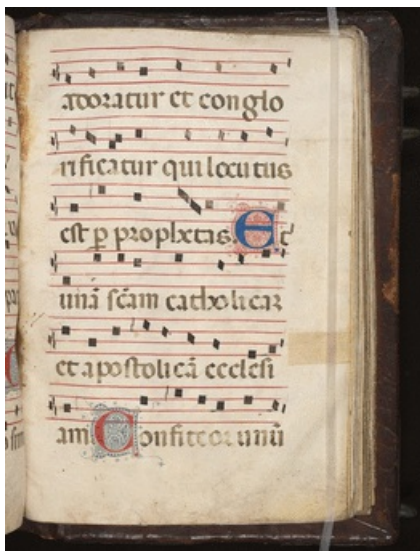 adoratur et conglo
rificatur qui locutus
est p̱ prophetas. Et
unā scām catholicaz
et apostolicā ecclesi
am Confiteor unū